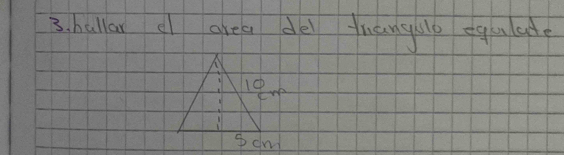 3. hallar el area del triangulo equilate
10 cm
5 cm